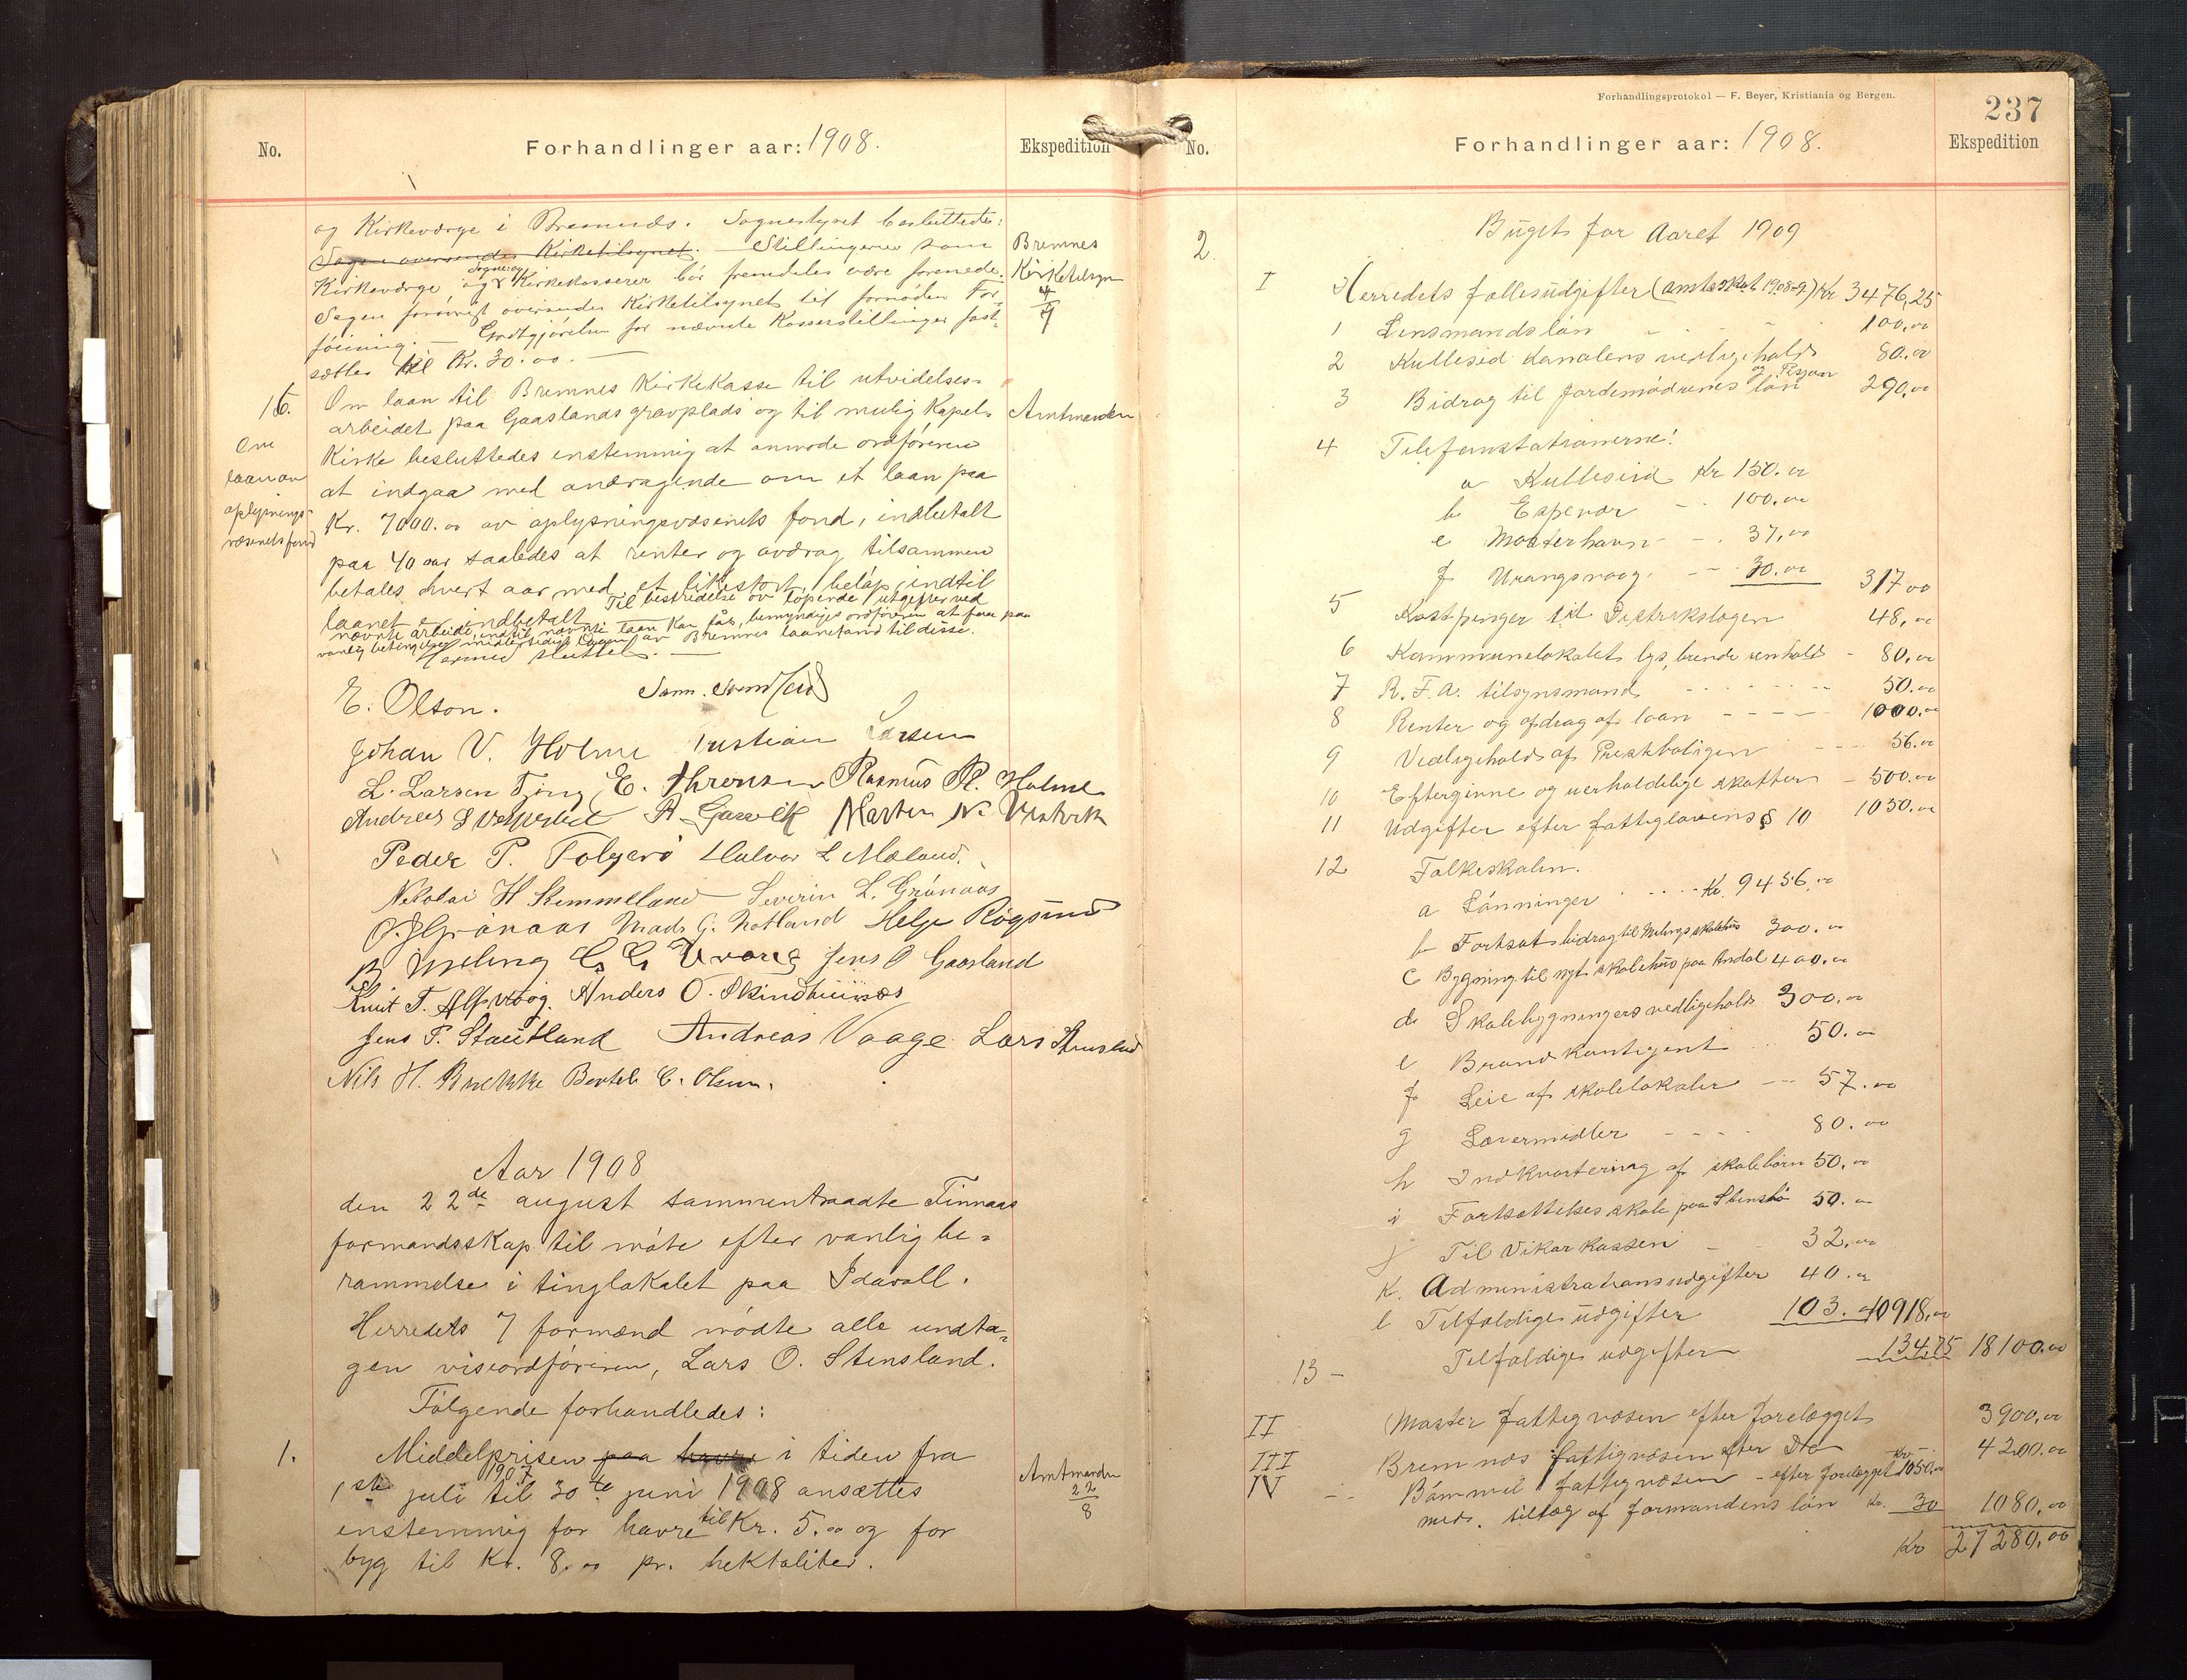 No.
Forhandlinger aar: 1908.
Ekspedition
og Kirkeværge i Bremnæs. Sognestyret besluttede:
Sagen oversendes Kirketilsynet. Stillingerne som
Bremnes
Kirkeværge og Sogne og Kirkekasserer bör fremdeles være forenede.
Kirketilsyn
Sagen forövrigt oversendes Kirketilsynet til fornöden For-
4
9
föining. — Godtgjörelsen for nævnte Kassererstillinger fast-
sættes til Kr. 30.00. —
16.
Om laan til Bremnes Kirkekasse til utvidelses-
arbeidet paa Gaaslands gravplads og til mulig Kapel-
Amtmanden
Om
laan av
oplysnings-
væsenets fond
Kirke besluttedes enstemmig at anmode ordföreren
at indgaa med andragende om et laan paa
Kr. 7000.00 av oplysningsvæsenets fond, indbetalt
paa 40 aar saaledes at renter og avdrag tilsammen
betales hvert aar med et likestort belöp, indtil
laanet er indbetalt. Til bestridelse av löpende utgifter ved
nævnte arbeide, indtil nævnte laan kan fås, bemyndiges ordföreren at faa paa
vanlig betingelser midlertidigt laan av Bremnes laanefond til disse.
Hermed sluttet. —
E. Olson.
Johan V. Holme Kristian Larsen
L. Larsen Tjong E. Thronsen Rasmus R. Holme
A. Gaasvik Marten N. Vestvik
Peder P. Folgerö Halvor L Mæland.
Nikolai H Stemmeland Severin L. Grönaas
O. J Grönaas Mads G. Notland Helge Rögsund
B Meling G. G. Urang Jens O Gaasland
Knut T. Alfsvaag. Anders O. Skimmeland
Jens P. Stautland Andreas Vaage Lars Stensland
Nils H. Brekke Bertel C. Olsen.
Aar 1908
den 22de august sammentraadte Finnaas
formandsskap til möte efter vanlig be-
rammelse i tinglokalet paa Idavoll.
Herredets 7 formænd mödte alle undta-
gen viseordföreren, Lars O. Stensland.
Fölgende forhandledes:
1.
Middelprisen paa havre i tiden fra
1ste juli 1907 til 30te juni 1908 ansættes
Amtmanden
22
8
enstemmig for havre til Kr. 5.00 og for
byg til Kr. 8.00 pr. hektoliter.
Forhandlingsprotokol — F. Beyer, Kristiania og Bergen.
237
No.
Forhandlinger aar: 1908.
Ekspedition
2.
Buget for Aaret 1909
I
Herredets fællesudgifter (amtsskat 1908-9) Kr 3476,25
1 Lensmandslön 100,00
2 Kulleseid Kanalens vedligehold 80.00
3 Bidrag til Jordemödrenes lön og Pesjon 290,00
4 Telefonstationerne:
a Kulleseid Kr 150.00
b Espevær 100.00
c Mosterhavn 37,00
f Urangsvaag 30.00 317 00
5 Kostpenger til Distriktslægen 48,00
6 Kommunelokalets lys, brende renhold 80,00
7 R.F.A. tilsynsmand 50.00
8 Renter og afdrag af laan 1000.00
9 Vedligehold af Prestboligen 56.00
10 Eftergivne og uerholdelige skatter 500.00
11 Udgifter efter fattiglovens § 10 1050.00
12 Folkeskolen.
a Lönninger Kr. 9456.00
b Fortsat bidrag til Melings skolehus 300.00
c Bygning til nyt skolehus paa Andal 400.00
d Skolebygningers vedligehold 300.00
e Brandkontigent 50.00
f Leie af skolelokaler 57.00
g Læremidler 80.00
h Indkvartering af skolebörn 50.00
i Fortsættelses skole paa Stensbö 50.00
j Til Vikarkassen 32,00
k. Administrationsudgifter 40.00
l Tilfældige udgifter 103.00 10918,00
13 — Tilfældige udgifter 134,75 18100.00
II Moster fattigvæsen efter forelægget 3900,00
III Bremnæs fattigvæsen efter Do 4200.00
IV Bömmel fattigvæsen – efter forelægget Kr. 1050.00
med. tillæg af formandens lön Kr. 30 1080,00
Kr 27280,00